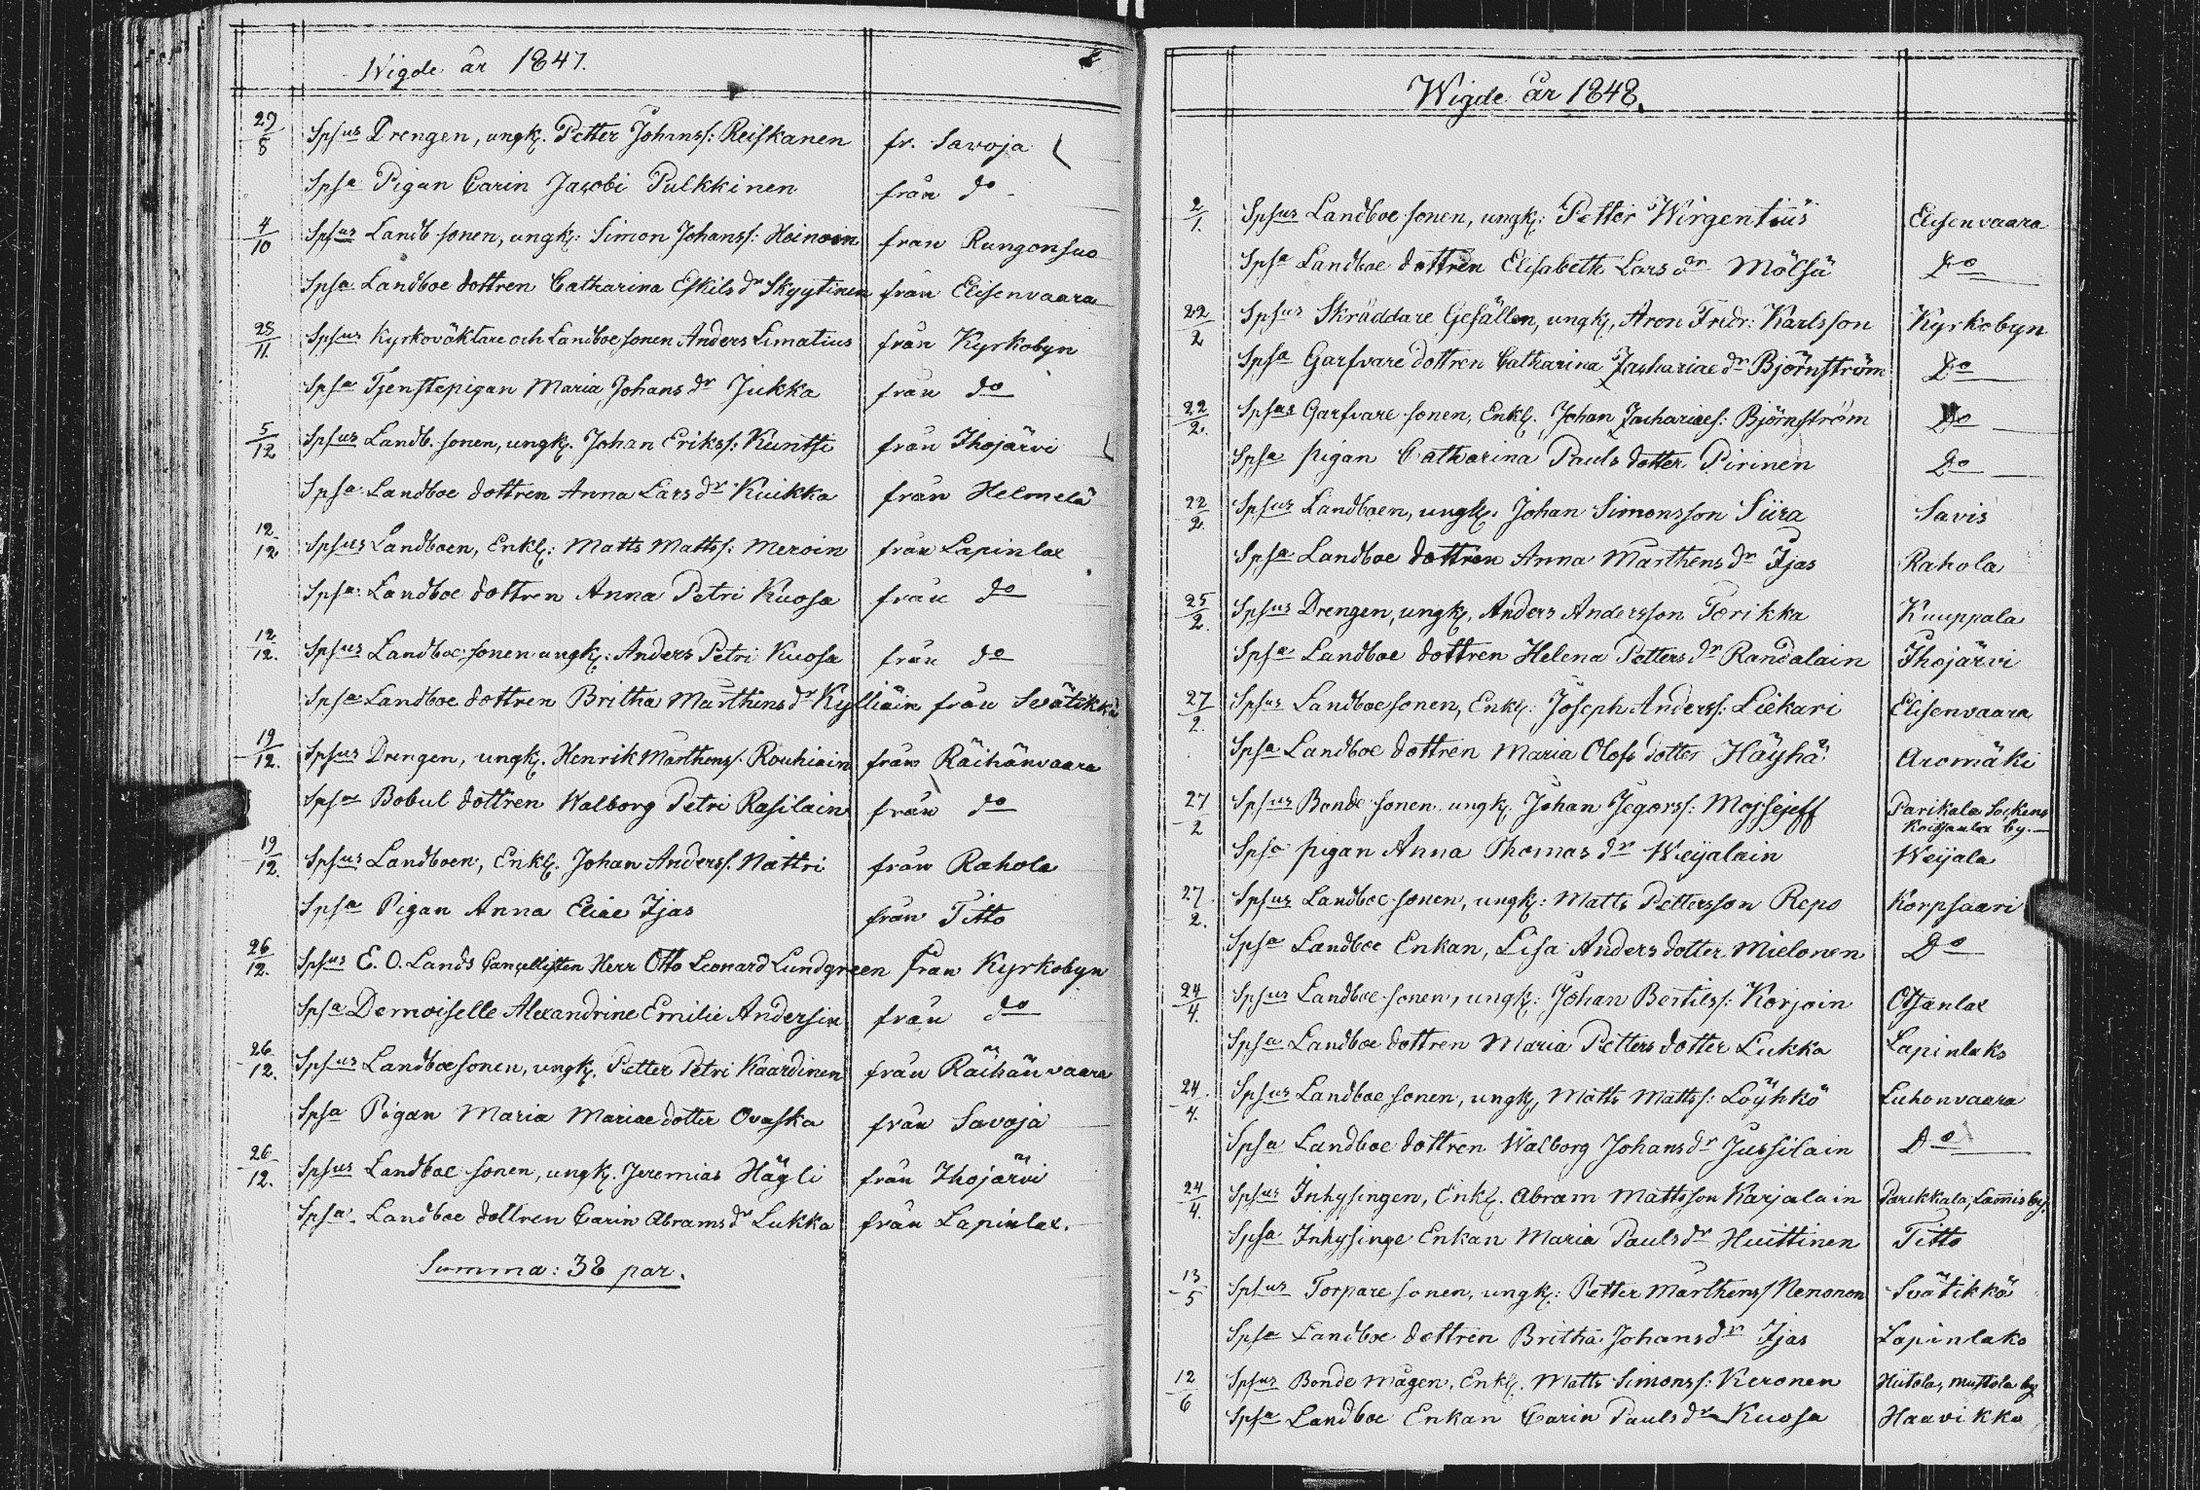 Wigde år 1847.
27/8 Spsus Drengen, ungk. Petter Johanss: Reiskanen fr. Savoja
Spsa Pigan Carin Jacobi Pulkkinen från do
4/10 Spsus Landb. sonen, ungk: Simon Johanss: Heinoin från Rungonsuo
Spsa Landboe dottren Catharina Eskils dr Skyytinen från Elisenvaara
28/11. Spsus Kyrkoväktare och Landboe sonen Anders Limatius från Kyrkobyn
Spsa Tjenstepigan Maria Johans dr Jukka från do
5/12 Spsus Landb. sonen, ungk. Johan Erikss: Kuntsi från Ihojärvi
Spsa Landboe dottren Anna Lars dr Kuikka från Helmelä
12/12 Spsus Landboen, Enkl: Matts Matts: Meroin från Lapinlax
Spsa Landboe dottren Anna Petri Kuosa från do
12/12. Spsus Landboe sonen ungk: Anders Petri Kuosa från do
Spsa Landboe dottren Britha Marthens dr Kylliäin från Svätikkä
19/12. Spsus Drengen, ungk. Henrik Marthenss: Rouhiain från Räihänvaara
Spsa Bobul dottren Walborg Petri Rasilain från do
19/12. Spsus Landboen, Enkl. Johan Anderss. Nättri från Rahola
Spsa Pigan Anna Eliae Ijas från Titto
26/12. Spsus E. O. Lands Cancellisten Herr Otto Leonard Lundgreen från Kyrkobyn
Spsa Demoiselle Alexandrine Emilie Andersin från do
26/12. Spsus Landboe sonen, ungk. Petter Petri Kaardinen från Räihänvaara
Spsa Pigan Maria Mariae dotter Ovaska från Savoja
26/12. Spsus Landboe sonen, ungk. Jeremias Hägli från Ihojärvi
Spsa. Landboe dottren Carin Abrams dr Lukka från Lapinlax.
Summa: 38 par.
Wigde år 1848.
2/1. Spsus Landboe sonen, ungk: Petter Wirgentius Elisenvaara
Spsa Landboe dottren Elisabeth Lars dr Mölsä Do
22/2 Spsus Skräddare Gesällen, ungk, Aron Fridr: Karlsson Kyrkobyn
Spsa Garfvare dottren Catharina Zachariae dr Björnström Do
22/2. Spsus Garfvare sonen, Enkl. Johan Zachariaes: Björnström Do
Spsa pigan Catharina Pauls dotter Pirinen Do
22/2. Spsus Landboen, ungk. Johan Simonsson Siira Savis
Spsa Landboe dottren Anna Marthens dr Ijas Rahola
25/2. Spsus Drengen, ungk, Anders Andersson Torikka Kuuppala
Spsa Landboe dottren Helena Petters dr Randalain Ihojärvi
27/2. Spsus Landboe sonen, Enkl: Joseph Anderss: Liekari Elisenvaara
Spsa Landboe dottren Maria Olofs dotter Häyhä Aromäki
27/2 Spsus Bonde sonen ungk. Johan Jegorss: Mojsejeff Parikala Sockens by.
Spsa pigan Anna Thomas dr Weijalain Weijala
27/2. Spsus Landboe sonen, ungk: Matts Pettersson Repo Korpsaari
Spsa Landboe Enkan, Lisa Anders dotter Mielonen Do
24/4. Spsus Landboe sonen, ungk: Johan Bertilss: Korjoin Otsanlax
Spsa Landboe dottren Maria Petters dotter Lukka Lapinlaks
24/4. Spsus Landboe sonen, ungk, Matts Mattss: Löyhkö Luhonvaara
Spsa Landboe dottren Walborg Johans dr Jussilain Do
24/4. Spsus Inhysingen, Enkl. Abram Mattsson Karjalain Parikkala, Lamis by.
Spsa Inhysinge Enkan Maria Pauls dr Huittinen Titto
13/5 Spsus Torpare sonen, ungk: Petter Marthenss Nenonen Svätikkä
Spsa Landboe dottren Britha Johans dr Ijas Lapinlaks
12/6 Spsus Bonde mågen, Enkl. Matts Simonss: Keronen Hiitola, Mustola by
Spsa Landboe Enkan Carin Pauls dr Kuosa Haavikko